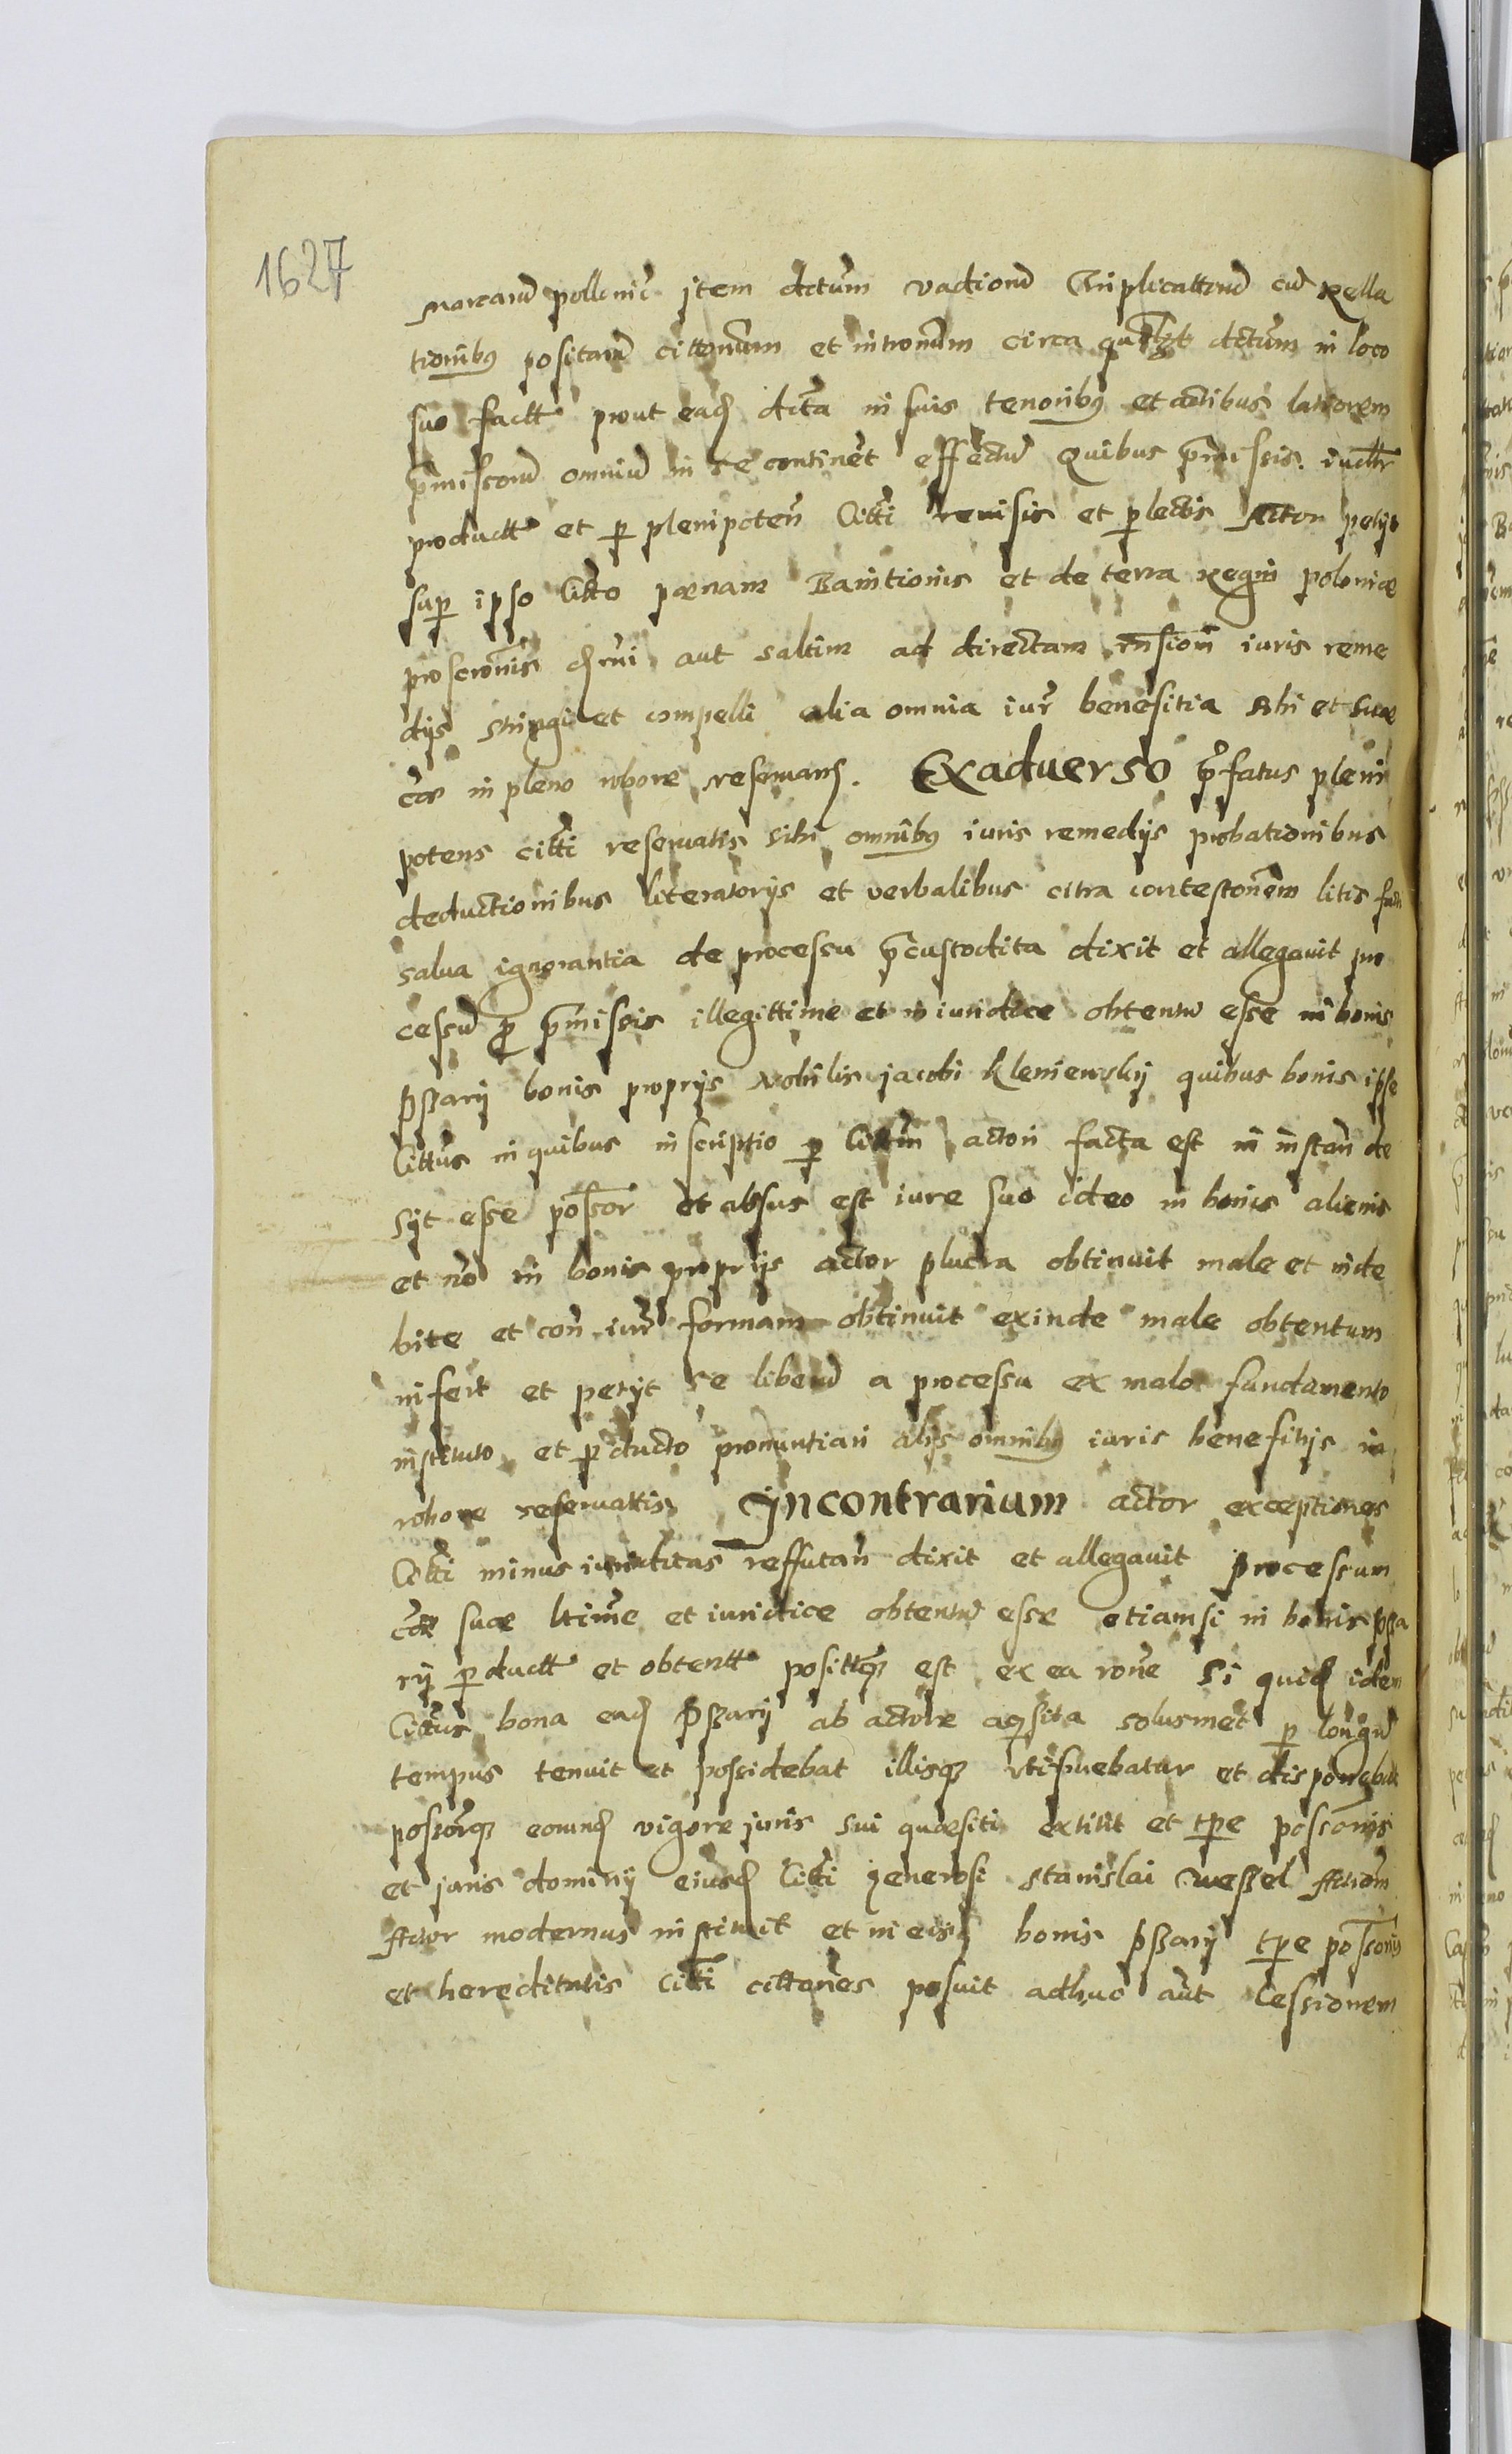 1627
marcarū pollonic̄ item dctum̄ vadiorū triplicattorū cū Rella
tionibȩ positarū cittonum̄ et intronum̄ circa quodlzt dctum̄ in loco
suo factt prout eadē dicta in suis tenoribȩ et actibus latiorem
p̄missorū omniū in se continet effectū Quibus p̄missis iuditr
productt et p plenipoten̄ Citti reuisis et plectis Actor petijt
sup ipso Citto pœnam Banitionis et de terra Regni poloniæ
proscronis̄ dcerni aut saltim ad directam rn̄sion̄ iuris reme
dijs stringi et compelli alia omnia iur̄ benefitia sibi et suæ
cæ in pleno robore reseruand. Exaduerso p̄fatus pleni
potens citti reseruatis sibi omnibȩ iuris remedijs probationibus
deductionibus literatorijs et verbalibus citra contestonem̄ litis
salua ignorantia de processu p̄custodita dixit et allegauit pro
cessū p̄missis illegittime et iuridice obtentū esse in bonis
pßary bonis proprijs Nobilis jacobi Kleniewsky quibus bonis ipse
Cittus in quibus inscriptio p Cittum̄ actori facta est in instan̄ de
syt esse possor et abusus est iure suo ideo in bonis alienis
et no in bonis proprijs actor plucra obtinuit male et inde
bite et con̄ iur̄ formam obtinuit exinde male obtentum
infert et petijt se liberū a processu ex malo fundamento
instituto et pducto pronuntiari alijs omnibȩ iuris benefitijs in
robore reseruattis Jncontrarium actor exceptiones
Citti minus iuriditas reffutan̄ dixit et allegauit processum
cæ suæ ltime et iuridice obtentū esse etiamsi in bonis pßa
ry pductt et obtentt posittqȝ est ex ea rone si quidē idem
Cittus bona eadē Pßary ab actore aqsita solusmet p longū
tempus tenuit et possidebat illisqȝ vtifruebatur et disponebat
possorqȝ eorundē vigore juris sui quæsiti extitit et tpe possonis
et juris dominij eiusdē Citti generosi Stanislai Weßel
Actor modernus instituit et in eisdē bonis pßary tpe possonis
et hereditatis Citti cittones posuit adhuc aūt Cessionem